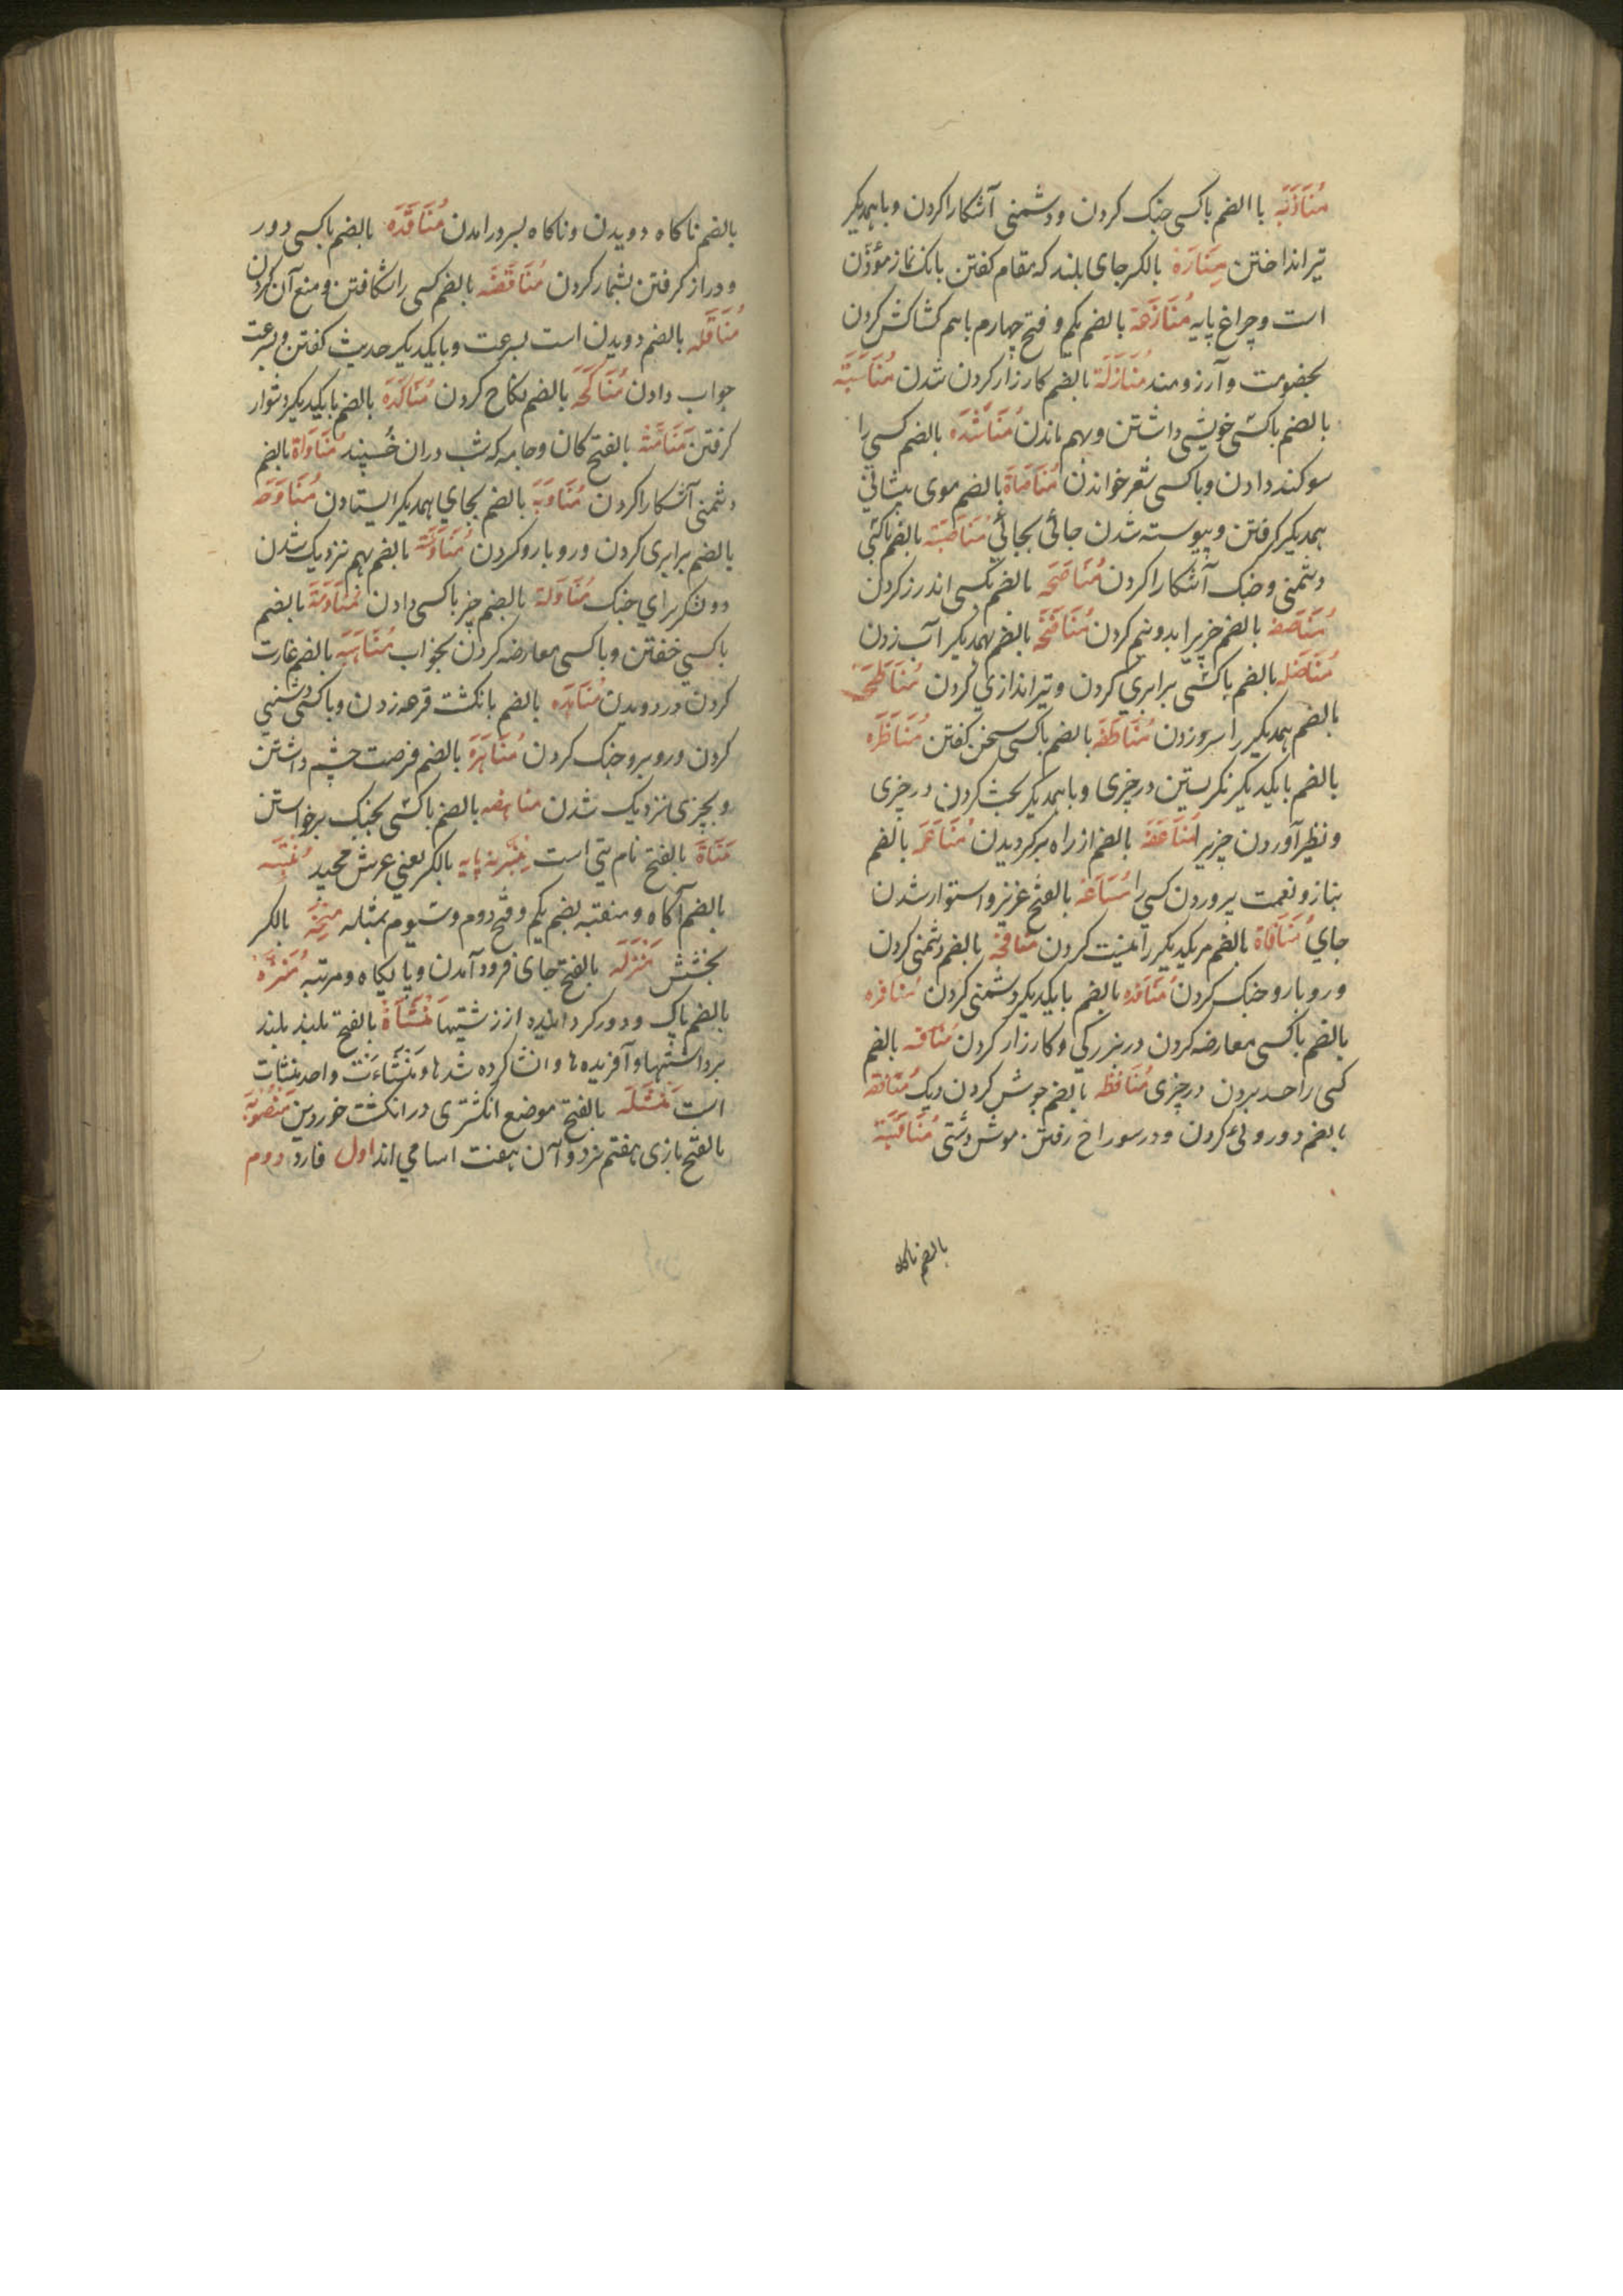 مُنَاذَبَه باالضم باکسی جنک کردن ودشمنی آشکارا کردن وباهمدیکر
تیر انداختن مِنَارَة بالکسر جای بلند که مقام کفتن بانک نماز مؤذن
است وچراغ پایه مُنَازَعَة بالضم یکم وفتح چهارم باهم کشاکش کردن
بخصومت وآرزومند مُنَازَلَة بالضم کارزار کردن شدن مُنَاسَبَة
بالضم باکسی خویشی داشتن وبهم ماندن مُنَاشَدَه بالضم کسی را
سوکند دادن وباکسی شعر خواندن مُنَاصَاة بالضم موی پیشانی
همدیکر کرفتن وپیوسته شدن جائی بجائی مُنَاصَبَة بالضم باکسی
دشمنی وجنک آشکارا کردن مُنَاصَحَه بالضم بکسی اندرز کردن
مُنَاصَفه بالضم چیزیرا بدونیم کردن مُنَاضَخَه بالضم بهمدیکر آب زدن
مُنَاضَله بالضم باکسی برابری کردن وتیراندازی کردن مُنَاطَحَه
بالضم همدیکر را سرو زدن مُنَاطَقَه بالضم باکسی سخن کفتن مُنَاظَرَه
بالضم بایکدیکر نکریستین درچیزی وباهمدیکر بحث کردن درچیزی
ونظیر آوردن چیزیرا مُنَاعَفَه بالضم از راه برکردیدن مُنَاعَمَه بالضم
بناز ونعمت پروردن کسی را مَنَاعَه بالفتح عزیز واستوار شدن
جای مُنَافَاة بالضم مریکدیکر را نیست کردن مُنَافحَه بالضم دشمنی کردن
وروبارو جنک کردن مُنَافَذه بالضم بایکدیکر دشمنی کردن مُنافره
بالضم باکسی معارضه کردن دربزرکی وکارزار کردن مُنافسه بالضم
کسی را حسد بردن درچیزی مُنَافَظه بالضم جوش کردن دیک مُنَافقه
بالضم دورویی کردن ودرسوراخ رفتن موش دشتی مُنَاقَبَة
بالضم ناکاه
بالضم ناکاه دویدن وناکاه بسر درامدن مُنَاقَدَه بالضم باکسی دور
ودراز کرفتن بشمار کردن مُنَاقَضَه بالضم کسی را شکافتن ومنع آن کردن
مُنَاقَله بالضم دویدن است بسرعت وبایکدیکر حدیث کفتن وبسرعت
جواب دادن مُنَاکَحَه بالضم نکاح کردن مُنَاکَدَه بالضم بایکدیکر دشوار
کرفتن مَنَامَة بالفتح کان وجامه که شب دران خُسپند مُنَاوَاة بالضم
دشمنی آشکارا کردن مُنَاوَبَه بالضم بجای همدیکر ایستادن مُنَاوَصَه
بالضم برابری کردن وروبارو کردن مُنَاوَشَه بالضم بهم نزدیک شدن
دولشکر برای جنک مُنَاوَلَة بالضم چیز باکسی دادن مُنَاوَمَة بالضم
باکسی خفتن وباکسی معارضه کردن بخواب مُنَاهَبَه بالضم غارت
کردن ودر دویدن مُنَاهَدَه بالضم بانکشت قرعه زدن وباکسی دشمنی
کردن وروبرو جنک کردن مُنَاهَزَة بالضم فرصت چشم داشتن
وبچیزی نزدیک شدن مناهضه بالضم باکسی بجنک برخواستن
مَنَاة بالفتح نام بتی است مِنبَر نه پایه بالکسر یعنی عرش مجید مُنتَبَه
بالضم آکاه ومنتبه بضم یکم وفتح دوم وسیوم بمثله مِنحَة بالکسر
بخشش مَنزَلَه بالفتح جای فرود آمدن وپایکاه ومرتبه مُنَزَّه
بالضم پاک ودور کرداننده از زشتیها مَنشَأة بالفتح بلند بلند
برداشتیها وآفریده ها وانشا کرده شدها ومنشاءت واحد منشات
است مَنشَلَه بالفتح موضع انکشتری درانکشت خوردین مَنصُوبَه
بالفتح بازی هفتم نرد وآن هفت اسامی اند اول فارد دوم